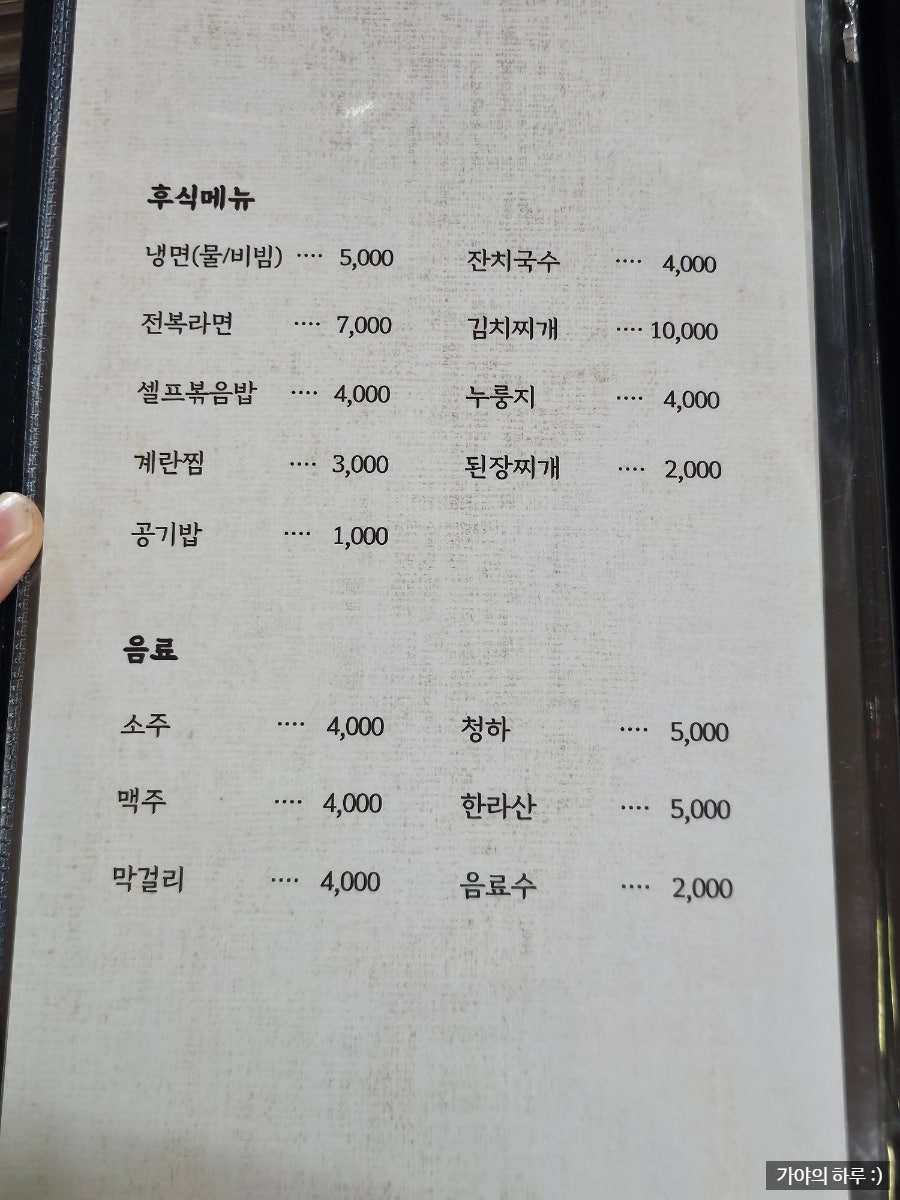 후식메뉴
냉면(물/비빔) ···· 5,000 잔치국수 ···· 4,000
전복라면 ···· 7,000 김치찌개 ···· 10,000
셀프볶음밥 ···· 4,000 누룽지 ···· 4,000
계란찜 ···· 3,000 된장찌개 ···· 2,000
공기밥 ···· 1,000
음료
소주 ···· 4,000 청하 ···· 5,000
맥주 ···· 4,000 한라산 ···· 5,000
막걸리 ···· 4,000 음료수 ···· 2,000
가야의 하루 :)